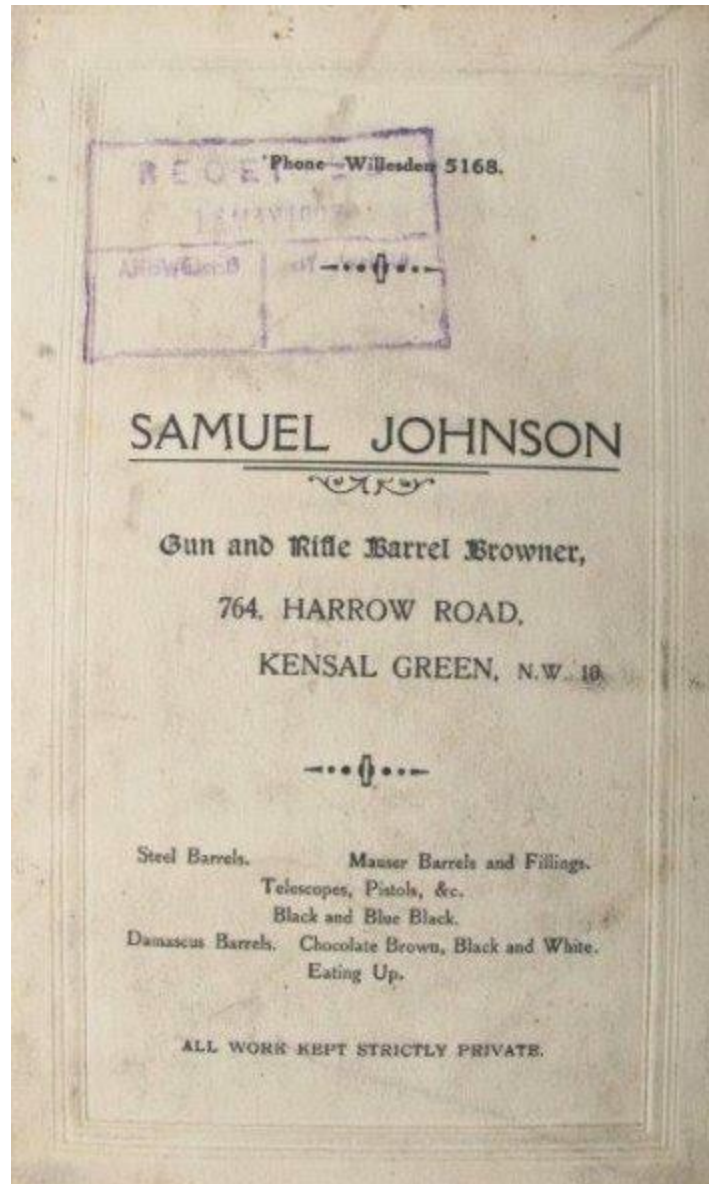 'Phone—Willesden 5168.
RECEI
ANSWERED
SAMUEL JOHNSON
Gun and Rifle Barrel Browner,
764, HARROW ROAD,
KENSAL GREEN, N.W. 10.
Steel Barrels. Mauser Barrels and Fillings.
Telescopes, Pistols, &c.
Black and Blue Black.
Damascus Barrels. Chocolate Brown, Black and White.
Eating Up.
ALL WORK KEPT STRICTLY PRIVATE.